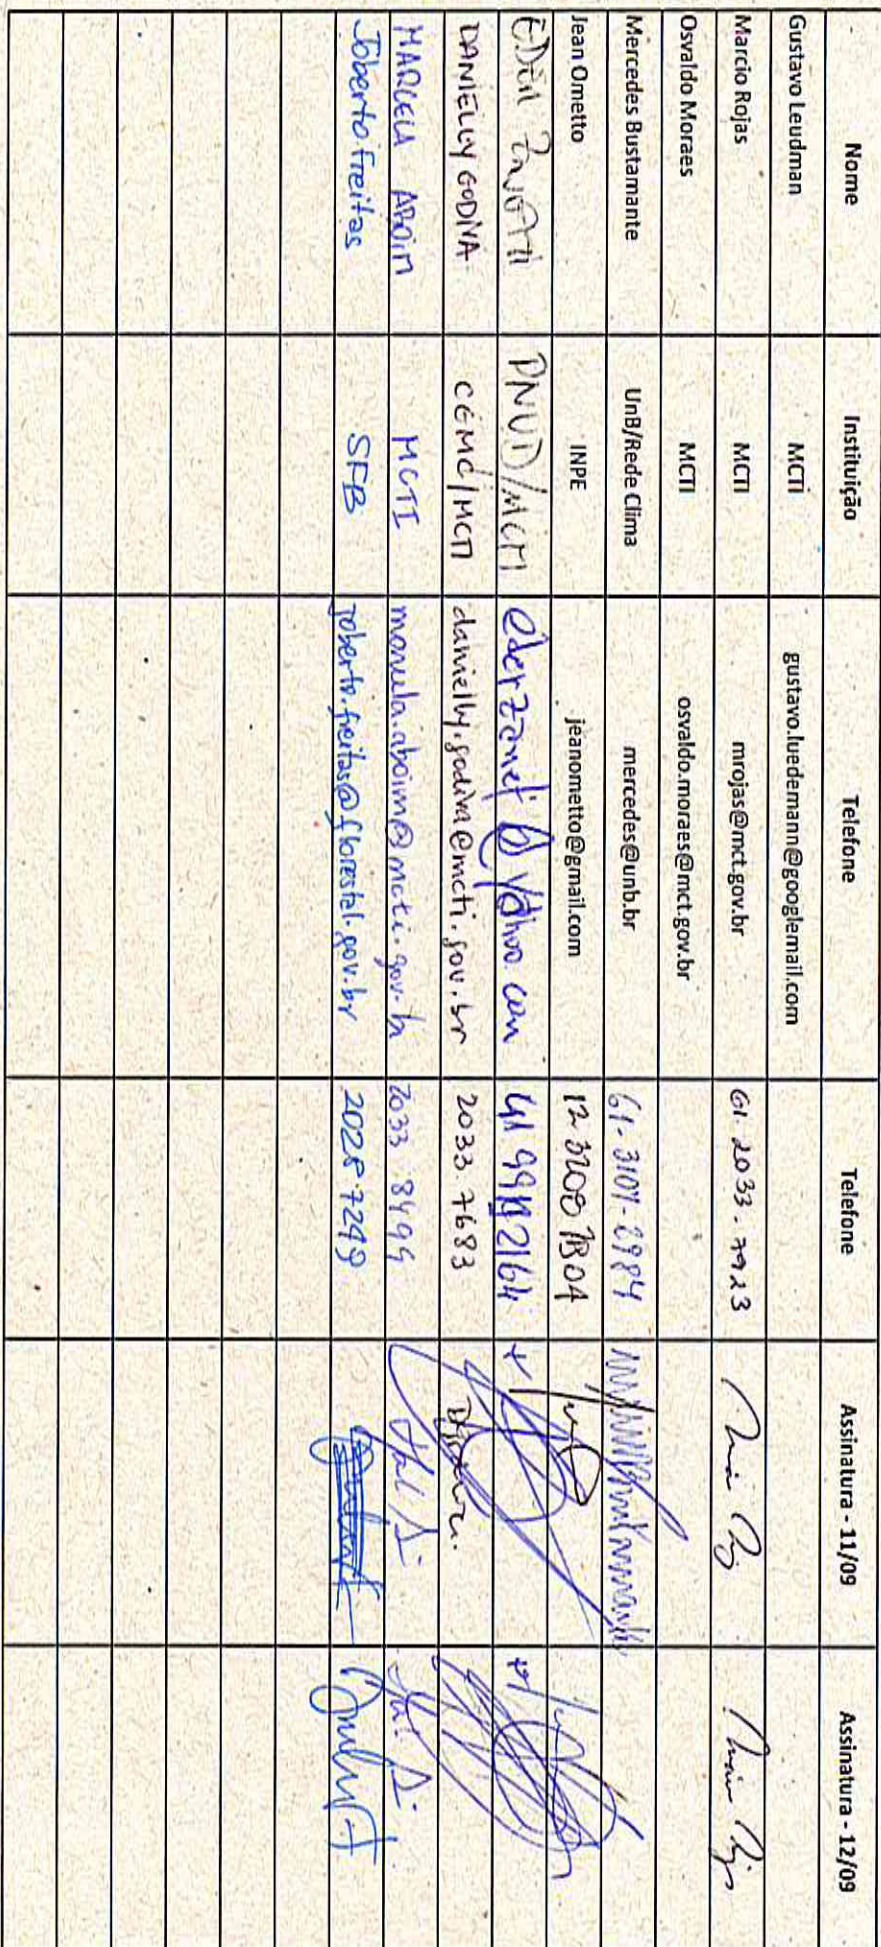 Nome Instituição Telefone Telefone Assinatura - 11/09 Assinatura - 12/09
Gustavo Leudman MCTi gustavo.luedemann@googlemail.com
Marcio Rojas MCTI mrojas@mct.gov.br 61. 2033. 7923
Osvaldo Moraes MCTI osvaldo.moraes@mct.gov.br
Mercedes Bustamante UnB/Rede Clima mercedes@unb.br 61-3107-2984
Jean Ometto INPE jeanometto@gmail.com 12 3208
PNUD/MCTI @yahoo.com 41
DANIELLY GODIVA CGMC/MCTI danielly.godiva@mcti.gov.br 2033.7683
MARCELA ABOIM MCTI marcela.aboim@mcti.gov.br 2033 8499
Joberto Freitas SFB joberto.freitas@florestal.gov.br 20287249